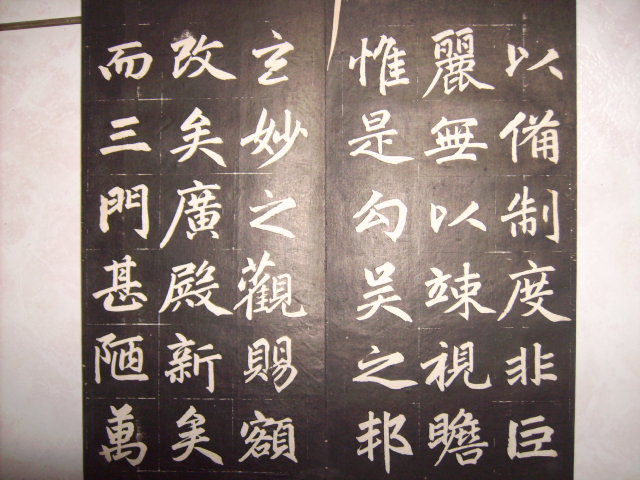 以備制度非巨
麗無以竦視瞻
惟是勾吴之邦
玄妙之觀賜額
改矣廣殿新矣
而三門甚陋萬